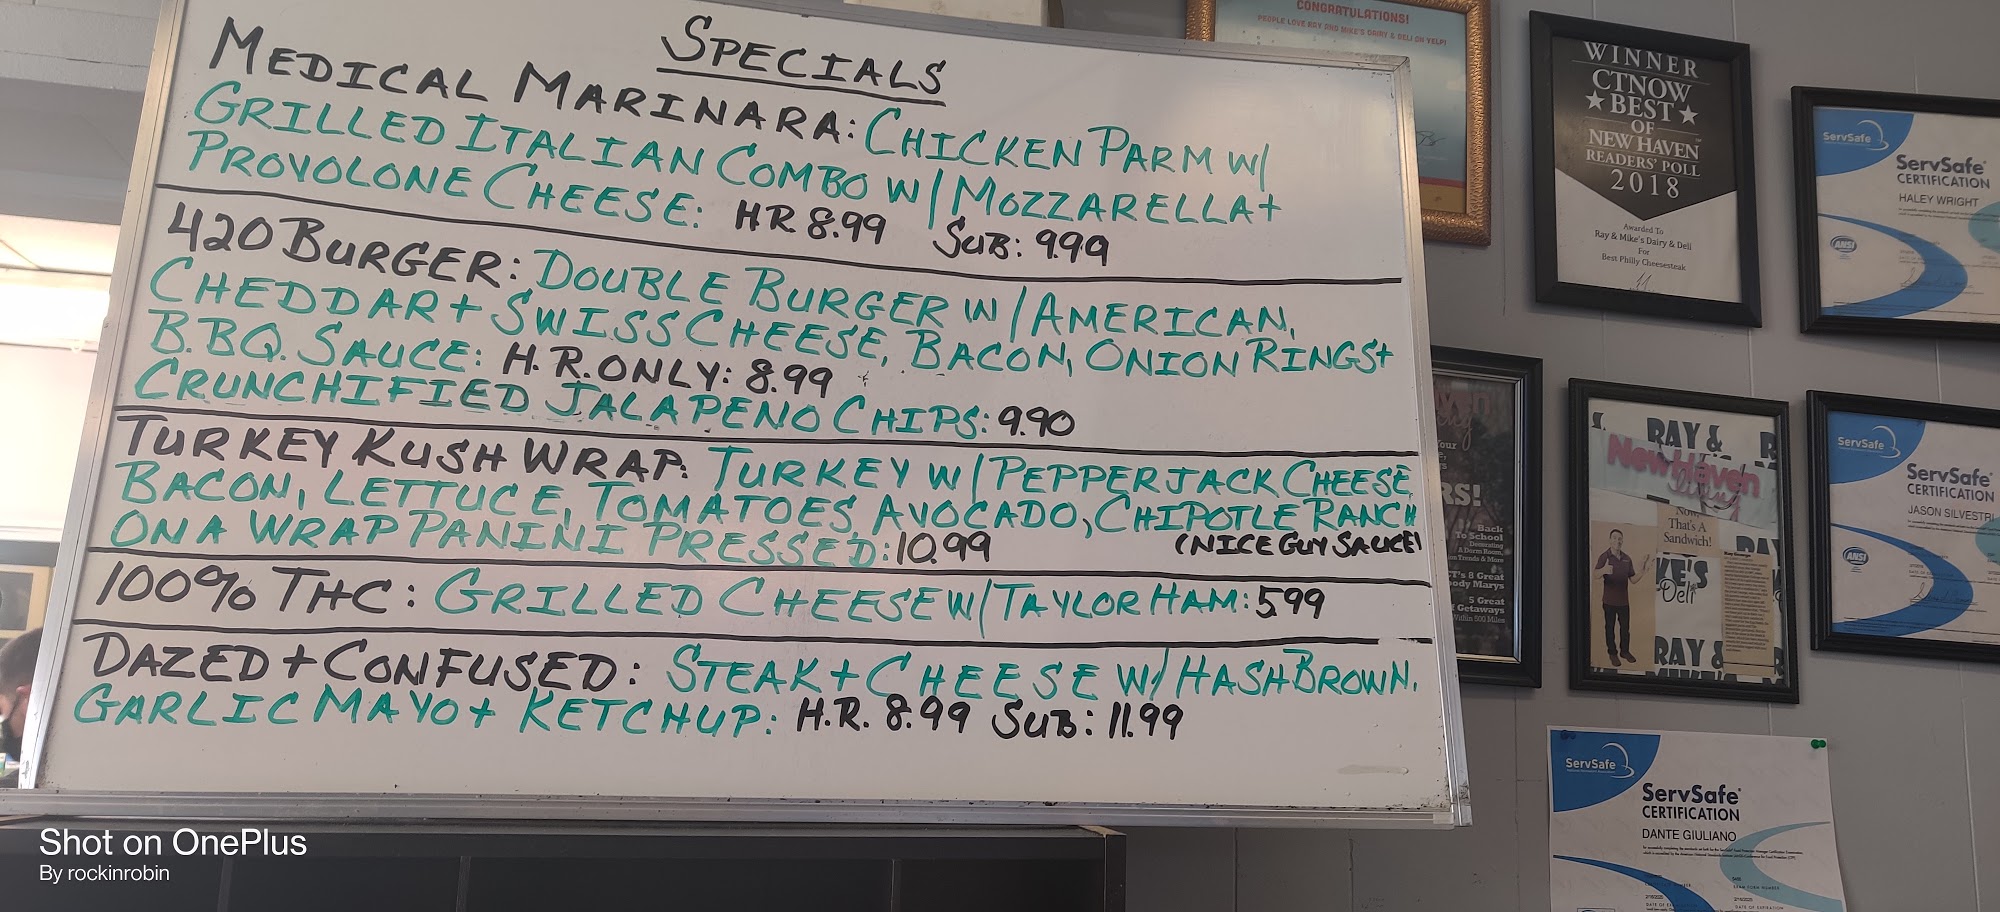 SPECIALS
MEDICAL MARINARA: CHICKEN PARM W/
GRILLED ITALIAN COMBO W/ MOZZARELLA +
PROVOLONE CHEESE: HR 8.99 SUB: 9.99
420 BURGER: DOUBLE BURGER W/ AMERICAN,
CHEDDAR + SWISS CHEESE, BACON, ONION RINGS +
B.BQ. SAUCE: H.R. ONLY: 8.99
CRUNCHIFIED JALAPENO CHIPS: 9.90
TURKEY KUSH WRAP: TURKEY W/ PEPPERJACK CHEESE,
BACON, LETTUCE, TOMATOES, AVOCADO, CHIPOTLE RANCH
ON A WRAP PANINI PRESSED: 10.99 (NICE GUY SAUCE)
100% THC: GRILLED CHEESE W/ TAYLOR HAM: 5.99
DAZED + CONFUSED: STEAK + CHEESE W/ HASH BROWN,
GARLIC MAYO + KETCHUP: H.R. 8.99 SUB: 11.99
CONGRATULATIONS!
PEOPLE LOVE RAY AND MIKE'S DAIRY & DELI ON YELP!
WINNER
CTNOW
BEST
OF
NEW HAVEN
READERS' POLL
2018
Awarded To
Ray & Mike's Dairy & Deli
For
Best Philly Cheesesteak
ServSafe
ServSafe
CERTIFICATION
HALEY WRIGHT
ANSI
RS!
Back
To School
5 Great
Getaways
Within 500 Miles
RAY &
New Haven
living
Now
That's A
Sandwich!
KE'S
Deli
RAY &
ServSafe
ServSafe
CERTIFICATION
JASON SILVESTRI
ANSI
ServSafe
ServSafe
CERTIFICATION
DANTE GIULIANO
Shot on OnePlus
By rockinrobin